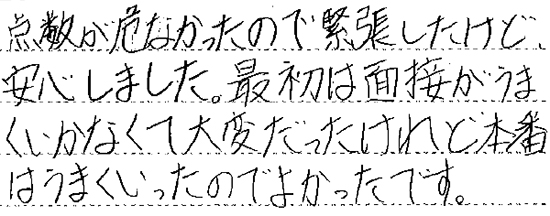 点数が危なかったので緊張したけど、
安心しました。最初は面接がうま
くいかなくて大変だったけれど本番
はうまくいったのでよかったです。